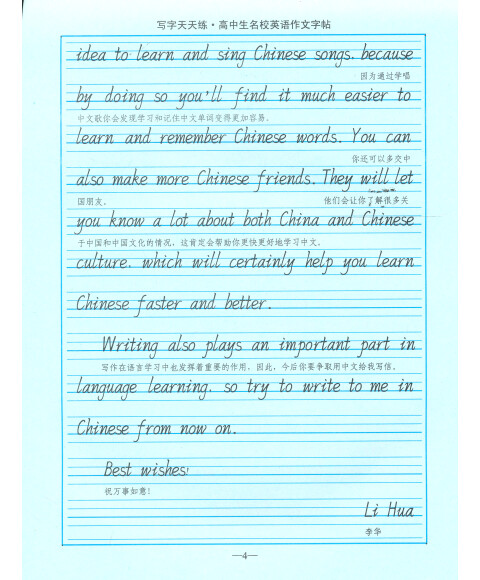 写字天天练·高中生名校英语作文字帖
idea to learn and sing Chinese songs. because
因为通过学唱
by doing so you'll find it much easier to
中文歌你会发现学习和记住中文单词变得更加容易。
learn and remember Chinese words. You can
你还可以多交中
also make more Chinese friends. They will let
国朋友。
他们会让你了解很多关
you know a lot about both China and Chinese
于中国和中国文化的情况,这肯定会帮助你更快更好地学习中文。
culture. which will certainly help you learn
Chinese faster and better.
Writing also plays an important part in
写作在语言学习中也发挥着重要的作用,因此,今后你要争取用中文给我写信。
language learning. so try to write to me in
Chinese from now on.
Best wishes!
祝万事如意!
Li Hua
李华
—4—